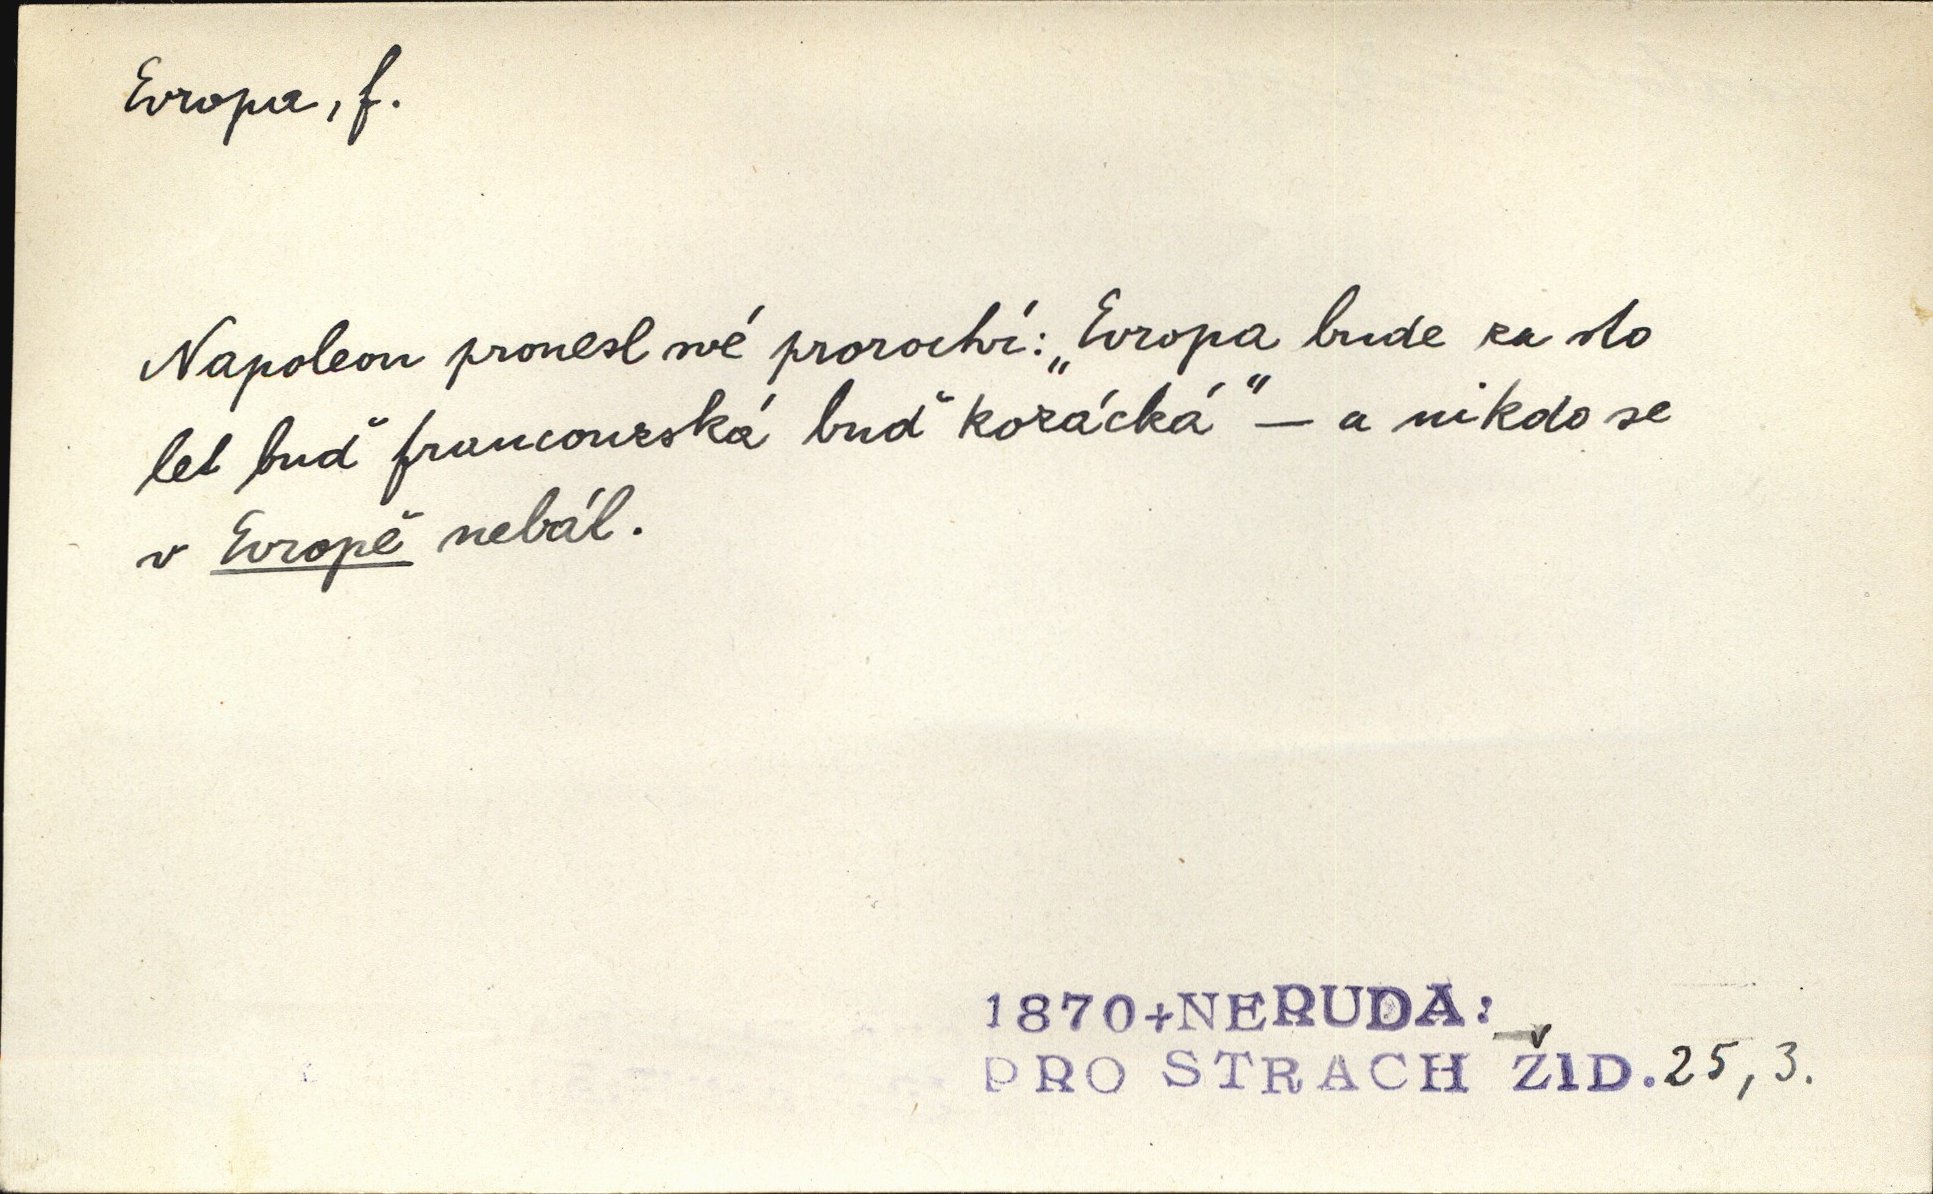 Evropa, f.
Napoleon pronesl své proroctví: „Evropa bude za sto
let buď francouzská buď kozácká“ – a nikdo se
v Evropě nebál.
1870+NERUDA:
PRO STRACH ŽID. 25, 3.